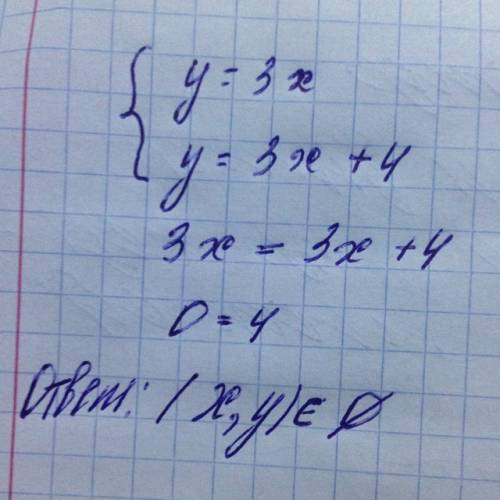 y = 3x
y = 3x + 4
3x = 3x + 4
0 = 4
Ответ: (x, y) ∈ ∅